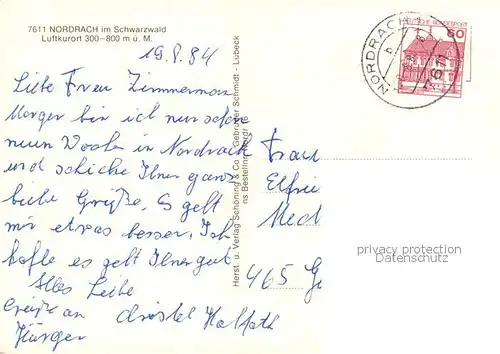 7611 NORDRACH im Schwarzwald
Luftkurort 300–800 m ü. M.
19.8.84
Liebe Frau Zimmermann
Morgen bin ich nun schon
neun Wochen in Nordrach
und schicke Ihnen ganz
liebe Grüße. Es geht
mir etwas besser. Ich
hoffe es geht Ihnen gut
Alles Liebe
Grüße an Christel
Jürgen
Herst. u. Verlag Schöning & Co. + Gebrüder Schmidt - Lübeck
ns Bestellnr. Nordr 16
DEUTSCHE BUNDESPOST
60
NORDRACH
7611
Frau
Elfrie
465 Ge
privacy protection
Datenschutz